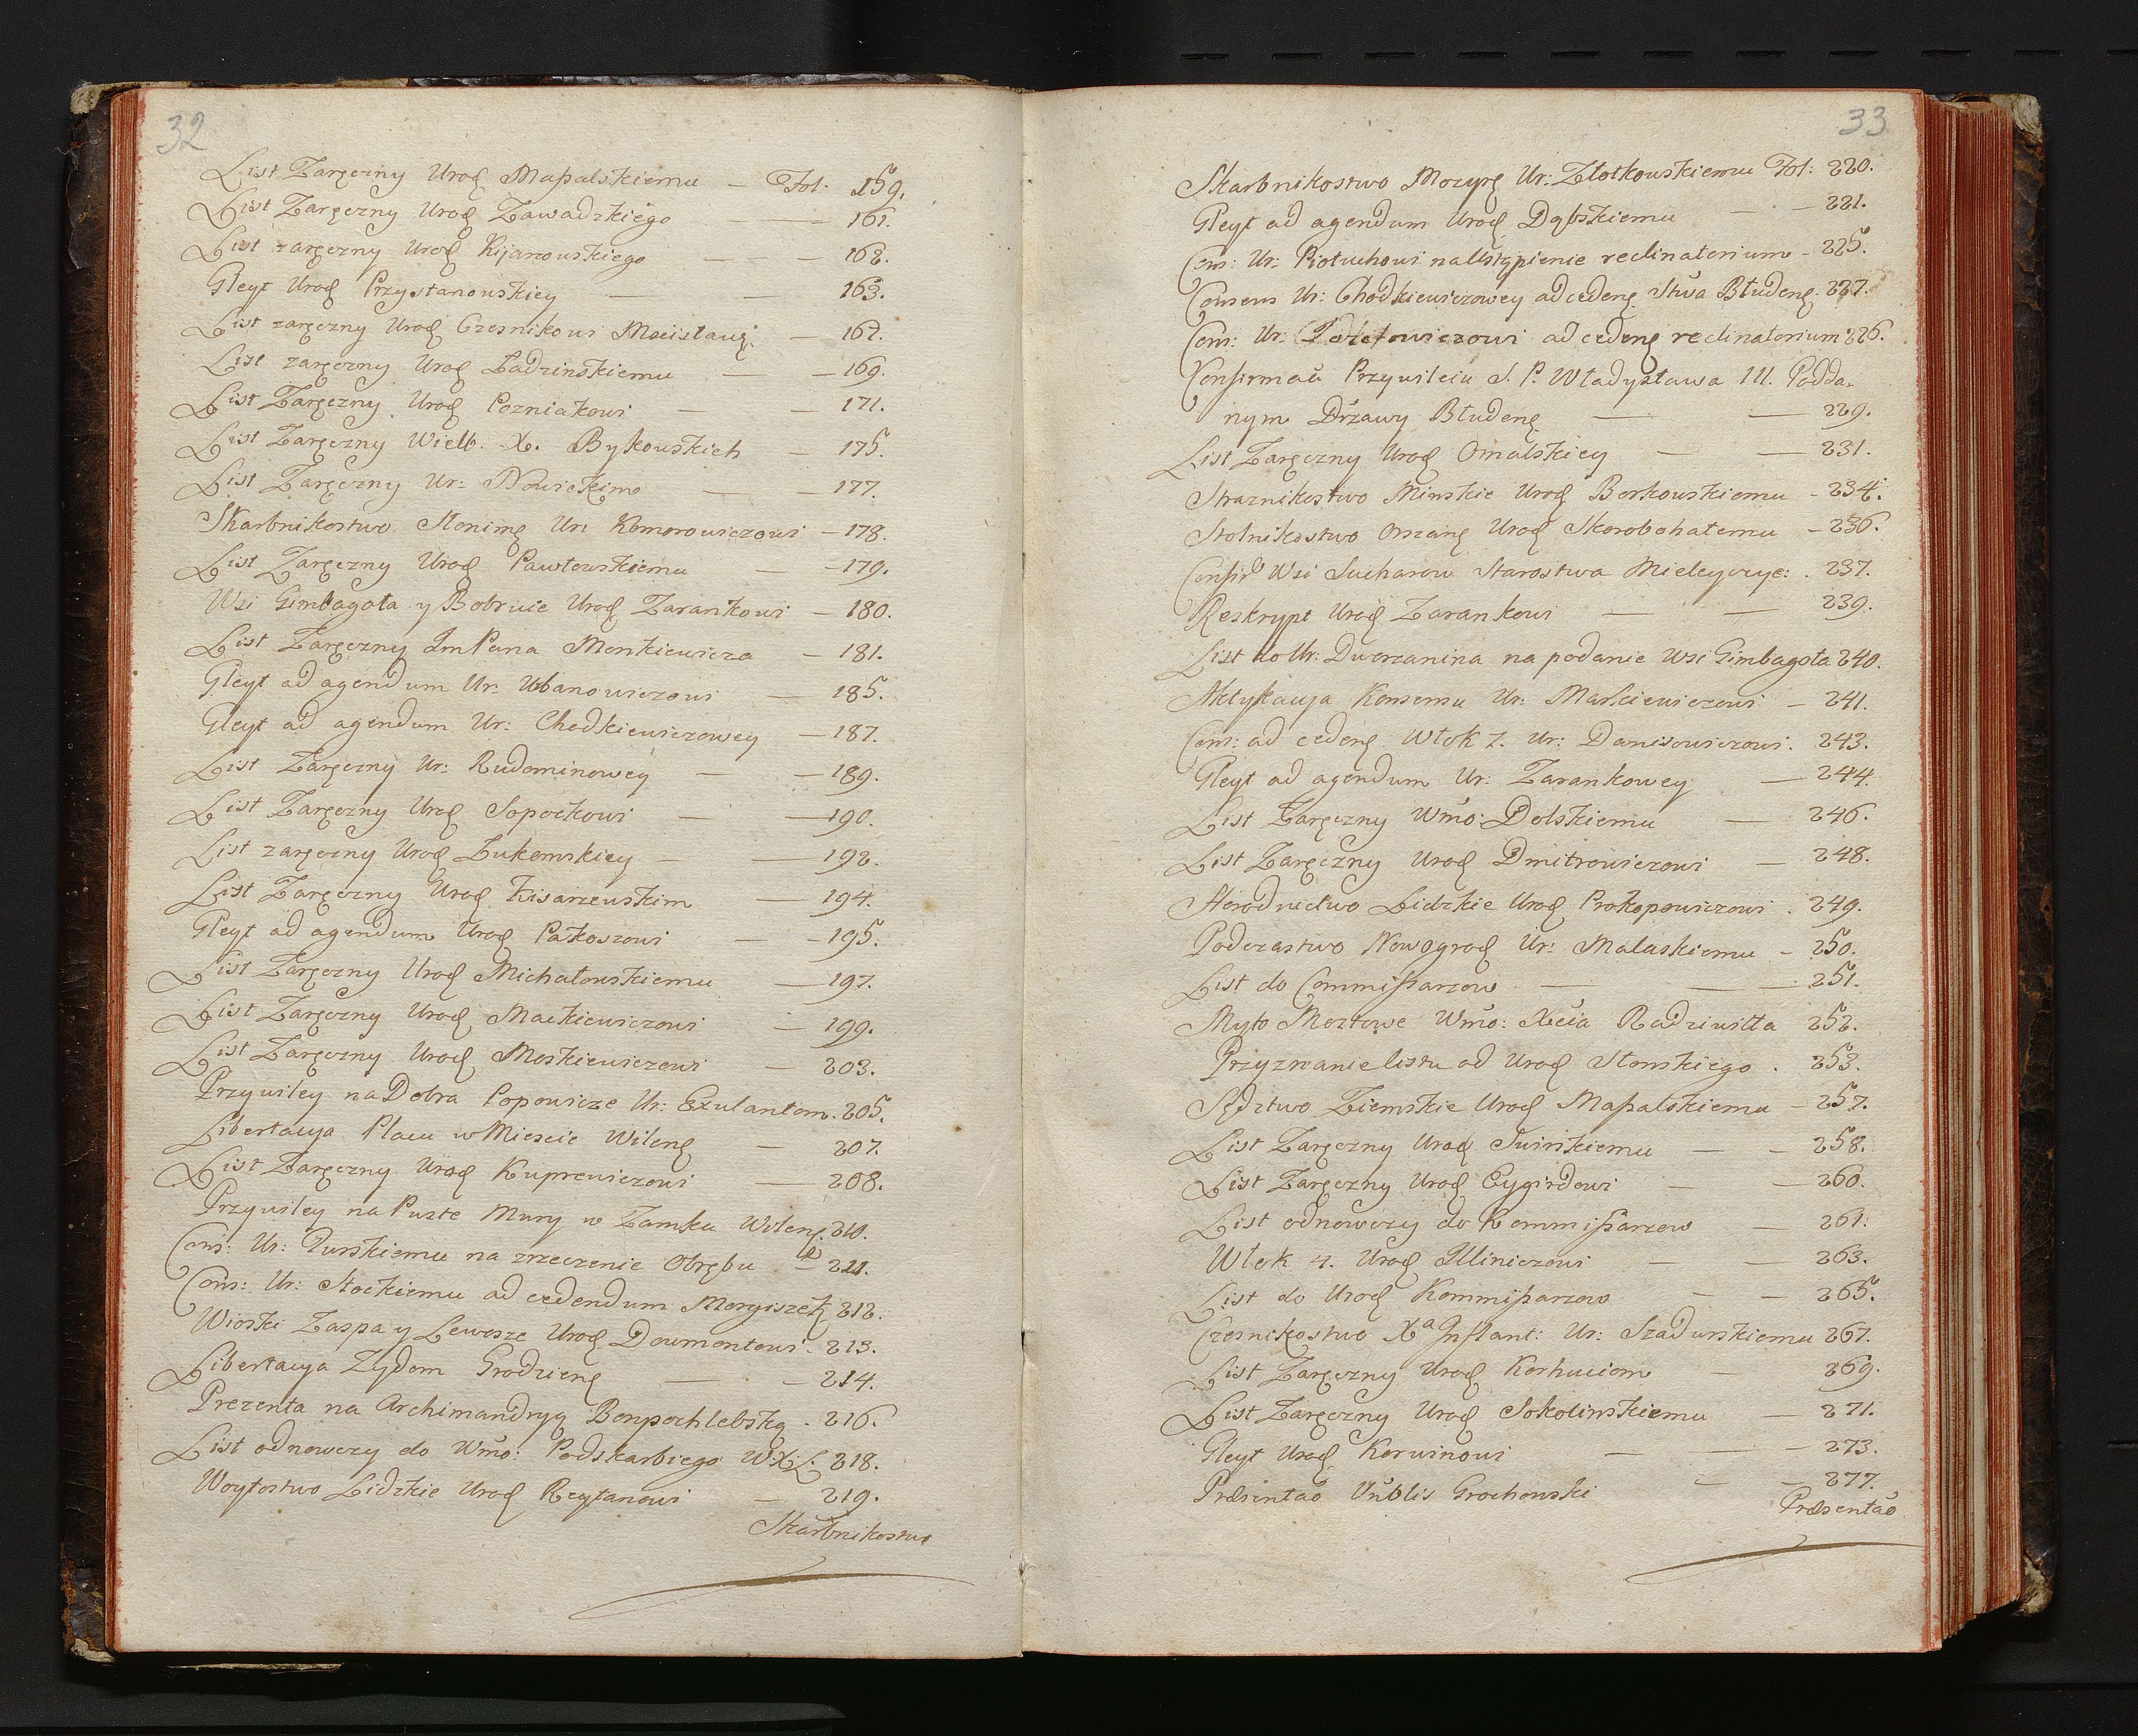 32
List Zaręczny Urod Maszalskiemu — Fol. 159.
List Zaręczny Urod Zawadzkiego — — 161.
List zaręczny Urod Kijanowskiego — — 162.
Gleyt Urod Przystanowskiey — — 163.
List zaręczny Urod Czesnikowi Mścisławę. — 167.
List zaręczny Urod Ładzinskiemu — — 169.
List Zaręczny Urod Pozniakowi — — 171.
List Zaręczny Wielb. X. Bykowskich — 175.
List Zaręczny Ur: Nowickim — — 177.
Skarbnikostwo Słonimę Ur: Komorowiczowi — 178.
List Zaręczny Urod Pawłowskiemu — — 179.
Wsi Gimbagoła y Bobrwie Urod Zarankowi — 180.
List Zaręczny ImPana Monkiewicza — 181.
Gleyt ad agendum Ur: Urbanowiczowi — 185.
Gleyt ad agendum Ur: Chodkiewiczowey — 187.
List Zaręczny Ur: Rudominowey — — 189.
List Zaręczny Urod Sopockowi — — 190.
List zaręczny Urod Łukomskiey — — 192.
List Zaręczny Urod Kisarzewskim — 194.
Gleyt ad agendum Urod Pakoszowi — — 195.
List Zaręczny Urod Michałowskiemu — 197.
List Zaręczny Urod Mackiewiczowi — 199.
List Zaręczny Urod Moskiewiczowi — 203.
Przywiley na Dobra Popowicze Ur: Exulantom. 205.
Libertacya Placu w Miescie Wilenę — 207.
List Zaręczny Urod Kuprewiczowi — 208.
Przywiley na Puste Mury w Zamku Wilenę. 210.
Cons: Ur: Turskiemu na zrzeczenie Obrębu — 211.
Cons: Ur: Stockiemu ad cedendum Morgiszek 212.
Wioski Zaspa y Lewosze Urod Doumontowi. 213.
Libertacya Zydom Grodzienę — — 214.
Prezenta na Archimandryą Bonpochlebską. 216.
List odnowczy do Wmo: Podskarbiego WXL: 218.
Woytostwo Lidzkie Urod Reytanowi — 219.
Skarbnikostwo
33
Skarbnikostwo Mozyrę Ur: Złotkowskiemu Fol: 220.
Gleyt ad agendum Urod Dąbskiemu — — 221.
Cons: Ur: Piotuchowi na Ustąpienie reclinatorium — 225.
Consens Ur: Chodkiewiczowey ad cedenę Stwa Błudenę. 227.
Cons: Ur: ad cedenę reclinatorium 226.
Confirmaō Przywileiu S. P. Władysława III. Podda-
nym Drzawy Błudenę — — 229.
List Zaręczny Urod Omalskiey — — 231.
Straznikostwo Minskie Urod Borkowskiemu — 234.
Stolnikostwo Orszanę Urod Skorobohatemu — 236.
Confir Wsi Sucharow Starostwa Mieleyczyc: . 237.
Reskrypt Urod Zarankowi — — 239.
List do Ur: Dworzanina na podanie Wsi Gimbagoła 240.
Aktykacya Konsensu Ur: Maskiewiczowi — 241.
Cons: ad cedenę Włok 7. Ur: Danisowiczowi. 243.
Gleyt ad agendum Ur: Zarankowey — 244.
List Zaręczny Wmo: Dolskiemu — 246.
List Zaręczny Urod Dmitrowiczowi — 248.
Horodnictwo Lidzkie Urod Prokopowiczowi . 249.
Podczastwo Nowogrod Ur: Malaskiemu — 250.
List do Commiszarzow — — 251.
Myto Mostowe Wmo: Xcia Radziwiłła 252.
Przyznanie listu od Urod Słonskiego . 253.
Sędztwo Ziemskie Urod Maszalskiemu — 257.
List Zaręczny Urod Swinskiemu — — 258.
List Zaręczny Urod Eygirdowi — — 260.
List odnowczy do Kommiszarzow — 261.
Włok 4. Urod Illiniczowi — — 263.
List do Urod Kommiszarzow — — 265.
Czesnikostwo Xa Inflant: Ur: Szadurskiemu 267.
List Zaręczny Urod Korhuciom — 269.
List Zaręczny Urod Sokolinskiemu — 271.
Gleyt Urod Korwinowi — — — 273.
Præsentaō Vnblis Grochowski — — 277.
Præsentaō